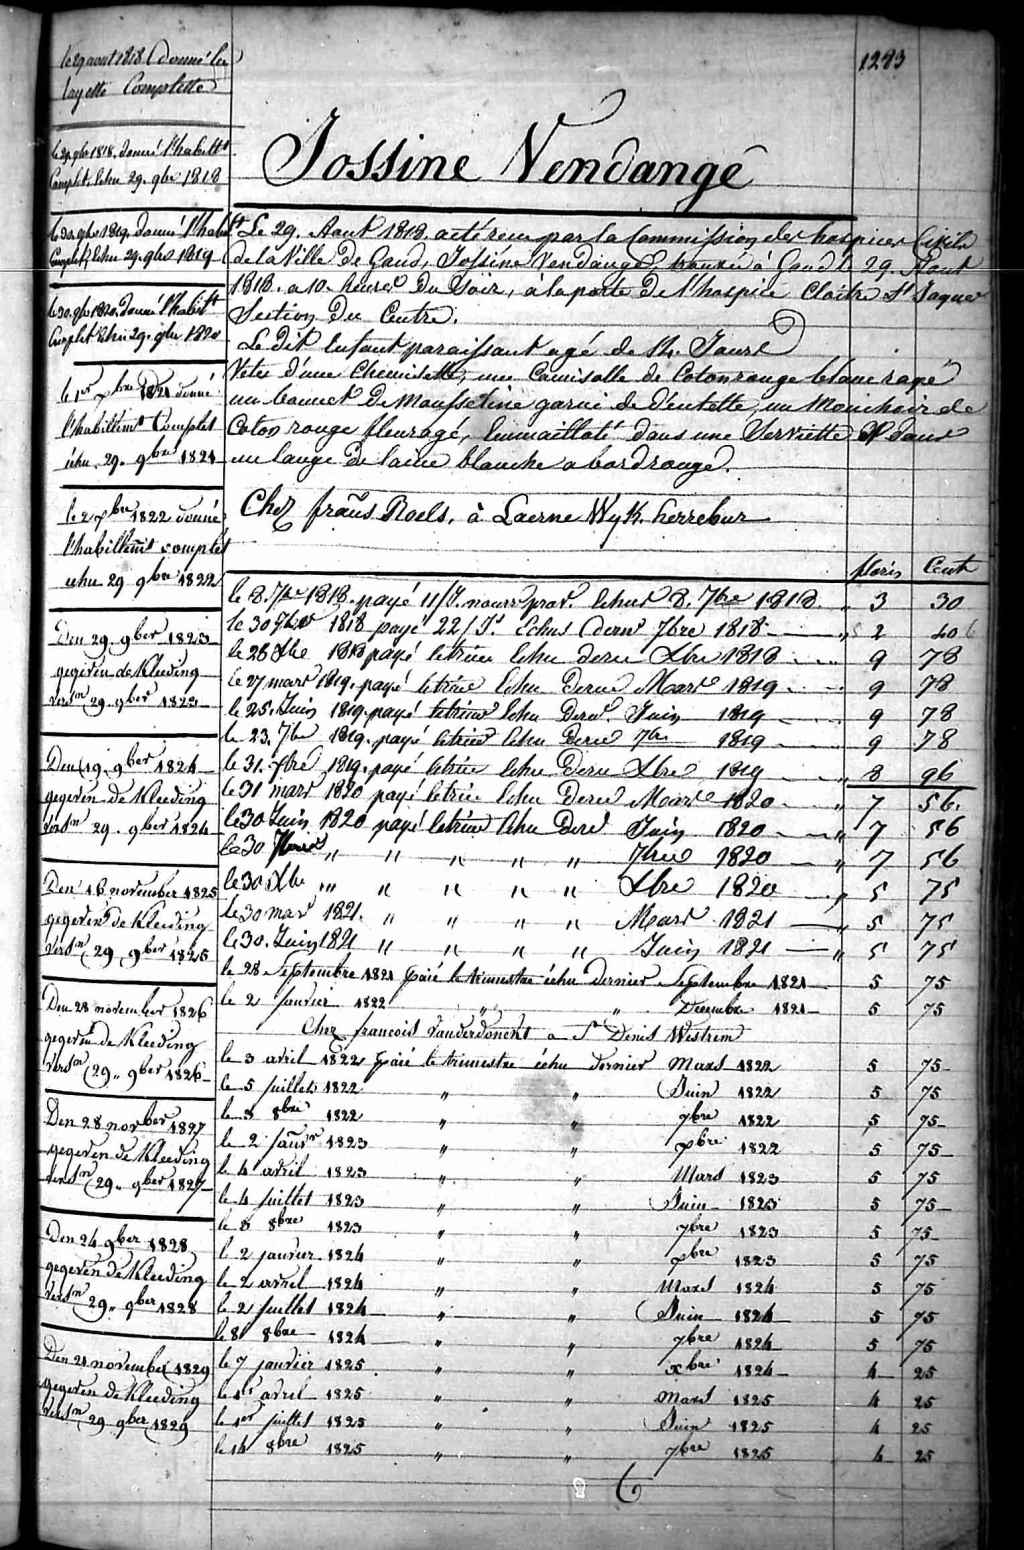 1293
le 29 aout 1818 donné la
layette Complette
le 29 9bre 1818. donné l'habill.t
Complet. Echu 29. 9bre 1818
le 30. 9bre 1819. donné l'habillt
Complet Echu 29. 9bre 1819
le 30. 9bre 1820. donné l'habillt
Complet Echu 29. 9bre 1820
le 1er xbre 1821 donné
l'habillemt Complet
échu. 29. 9bre 1821
le 2 xbre 1822 donné
l'habillemt complet
echu 29 9bre 1822
Den 29. 9ber 1823
gegeven de Kleeding
versn 29. 9ber 1823
Den 19. 9ber 1824
gegeven de Kleeding
versn 29. 9ber 1824
Den 16 november 1825
gegeven de Kleeding
versn 29 9ber 1825
Den 28 november 1826
gegeven de Kleeding
versn 29. 9ber 1826
Den 28 november 1827
gegeven de Kleeding
versn 29. 9ber 1827
Den 24 9ber 1828
gegeven de Kleeding
versn 29. 9ber 1828
Den 21 november 1829
gegeven de Kleeding
versn 29 9ber 1829
Jossine Vendangé
Le 29. Aout 1818 acté reçu par la Commission des hospices Civils
de la Ville de Gand, Jossine Vendangé trouvée à Gand le 29. Aout
1818. a 10. heures Du Soir, à la porte de l'hospice Cloitre St Jaques
Section Du Centre.
Le dit Enfant paraissant agé de 14. Jours
Vetu d'une Chemisette, une Camisolle de Coton rouge blanc rayé
un bonnet De Mousseline garni de d'entelle, un Mouchoir de
Coton rouge fleuragé, Emmailloté dans une Serviette & dans
un lange de laine blanche a bord rouge.
Chez frañs Roels, à Laerne Wyk. herrebur
floris Cent
le 8. 7bre 1818. payé 11/J. nourr prov. Echus 8. 7bre 1818. " 3 30
le 30 7bre 1818 payé 22/Js. Echus dern 7bre 1818 2 40
le 28 Xbre 1818 payé letrim Echu dern Xbre 1818 9 78
le 27 mars 1819. payé letrim Echu Dern Mars 1819 9 78
le 25. Juin 1819. payé letrim Echu Dern. Juin 1819 9 78
le 23. 7bre 1819. payé letrim Echu Dern 7bre 1819 9 78
le 31. Xbre 1819. payé letrim Echu Dern Xbre 1819 " 8 96
le 31 mars 1820 payé letrim Echu Dern Mars 1820 " 7 56.
le 30 Juin 1820 payé letrim Echu Dern Juin 1820 " 7 56
le 30 7bre " " " " " 7bre 1820 " 7 56
le 30 Xbre " " " " " Xbre 1820 " 5 75
le 30 mars 1821. " " " " Mars 1821 " 5 75
le 30. Juin 1821 " " " " Juin 1821 " 5 75
le 28 Septembre 1821 payé le trimestre échu dernier Septembre 1821 5 75
le 2 janvier 1822 " " Decembre 1821 5 75
Chez francois Vanderdonckt a St Denis Westrem
le 3 avril 1822 payé le trimestre échu dernier Mars 1822 5 75
le 5 juillet 1822 " " Juin 1822 5 75
le 3 8bre 1822 " " 7bre 1822 5 75
le 2 janvr 1823 " " xbre 1822 5 75
le 4 avril 1823 " " Mars 1823 5 75
le 4 juillet 1823 " " Juin 1823 5 75
le 3 8bre 1823 " " 7bre 1823 5 75
le 2 janvier 1824 " " xbre 1823 5 75
le 2 avril 1824 " " Mars 1824 5 75
le 2 juillet 1824 " " Juin 1824 5 75
le 8 8bre 1824 " " 7bre 1824 5 75
le 7 janvier 1825 " " xbre 1824 4 25
le 1er avril 1825 " " Mars 1825 4 25
le 1er juillet 1825 " " Juin 1825 4 25
le 14 8bre 1825 " " 7bre 1825 4 25